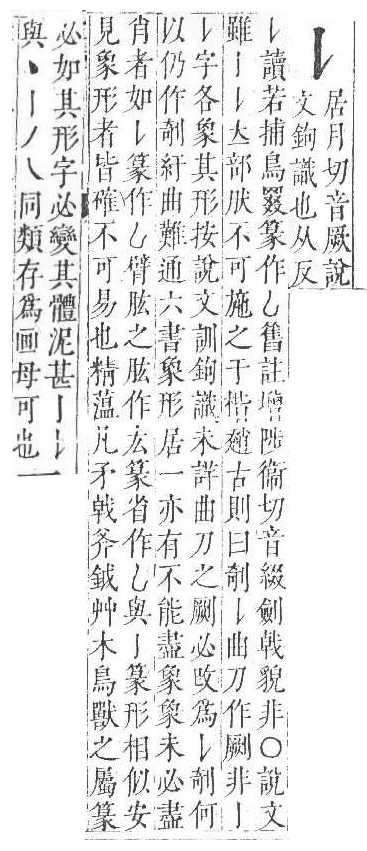 𠄌
居月切音厥說
文鉤識也从反
𠄌讀若捕鳥罬篆作乚舊註增陟衞切音綴劍戟貌非〇說文
雖亅𠄌𠀤部肰不可施之于楷趙古則曰剞𠄌曲刀作劂非亅
𠄌字各象其形按說文訓鉤識未詳曲刀之劂必改爲𠄌剞何
以仍作剞紆曲難通六書象形居一亦有不能盡象象未必盡
肖者如𠄌篆作乚臂肱之肱作厷篆省作乚與亅篆形相似安
見象形者皆確不可易也精薀凡矛戟斧鉞艸木鳥獸之屬篆
必如其形字必變其體泥甚亅𠄌
與丶亅丿乀同類存爲画母可也